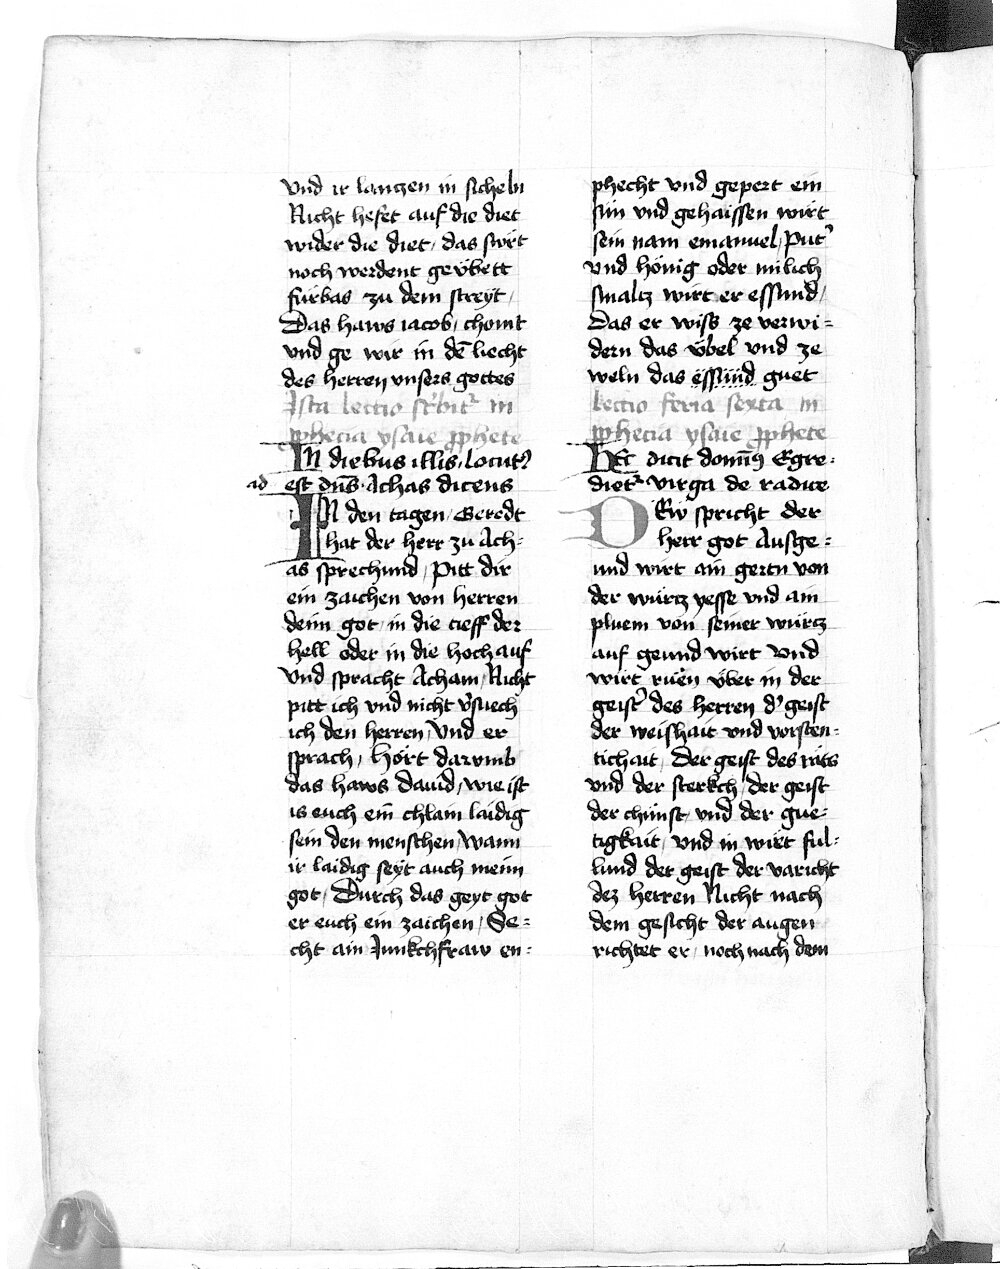 vnd ir lanczen in sicheln
Nicht hefet auf die diet
wider die diet / das swrt
noch werdent geẅbett
fürbas zu dem streyt /
Das haws iacob / chomt
vnd ge wir in dē liecht
des herren vnsers gottes
Ista lectio sc̄bitr in
pphecia ysaie pphete
IN diebus illis / locutꝰ
ad est dn̄s Achas dicens
IN den tagen / Geredt
hat der herr zu Ach-
as sprechund / Pitt dir
ein zaichen von herren
deim got / in die tieff der
hell oder in die hoch auf
vnd spracht Acham / Nicht
pitt ich vnd nicht v̾suech
ich den herren / Vnd er
sprach / Hört darvmb
das haws dauid / wie ist
is euch ein chlain laidig
sein den menschen / wann
ir laidig seyt auch meim
got / Durich das geyt got
er euch ein zaichen / Se-
cht ain Junkchfraw en-
phecht vnd gepert ein
sun vnd gehaissen wirt
sein nam emanuel / Putꝰ
vnd hönig oder milich
smalcz wirt er essund /
Das er wiss ze verwi-
dern das v̈bel vnd ze
weln das essund guet
lectio feria sexta in
pphecia ysaie pphete
HEc dicit domīꝰ Egre-
dietr virga de radice
DEw spricht der
herr got Ausge-
und wirt ain gertn von
der würcz yesse vnd ain
pluem von seiner würcz
auf geund wirt vnd
wirt ruen v̈ber in der
geist des herren d' geist
der weishait vnd vorsten-
tichait / Der geist des râts
vnd der sterkch / der geist
der chünst / vnd der gue-
tigkait / vnd in wirt ful-
lund der geist der varicht
dez herren Nicht nach
dem gesicht der augen
richtet er / noch nach dem